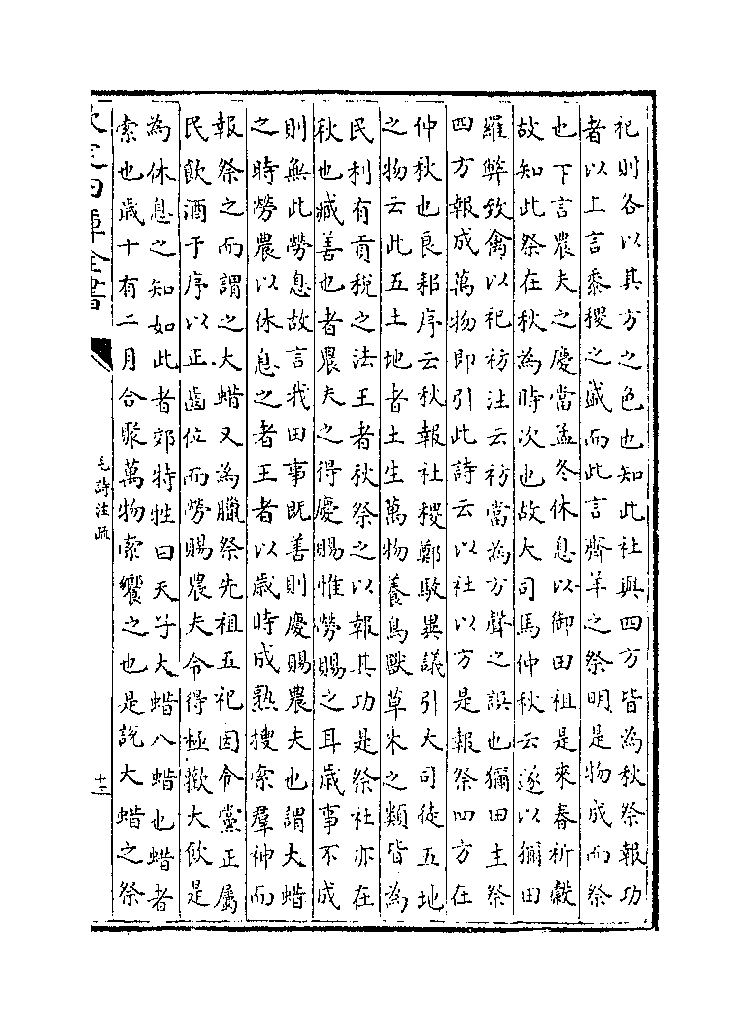 祀則各以其方之色也知此社與四方皆為秋祭報功
者以上言黍稷之盛而此言齊羊之祭明是物成而祭
也下言農夫之慶當孟冬休息以御田祖是來春祈穀
故知此祭在秋為時次也故大司馬仲秋云遂以獮田
羅弊致禽以祀祊注云祊當為方聲之誤也獮田主祭
四方報成萬物即引此詩云以社以方是報祭四方在
仲秋也良耜序云秋報社稷鄭駮異議引大司徒五地
之物云此五土地者土生萬物養鳥獸草木之類皆為
民利有貢稅之法王者秋祭之以報其功是祭社亦在
秋也臧善也者農夫之得慶賜惟勞賜之耳歲事不成
則無此勞息故言我田事既善則慶賜農夫也謂大蜡
之時勞農以休息之者王者以歲時成熟搜索羣神而
報祭之而謂之大蜡又為臘祭先祖五祀因令黨正屬
民飲酒于序以正齒位而勞賜農夫令得極歡大飲是
為休息之知如此者郊特牲曰天子大蜡八蜡也蜡者
索也歲十有二月合聚萬物索饗之也是說大蜡之祭
欽定四庫全書
毛詩注疏
十三